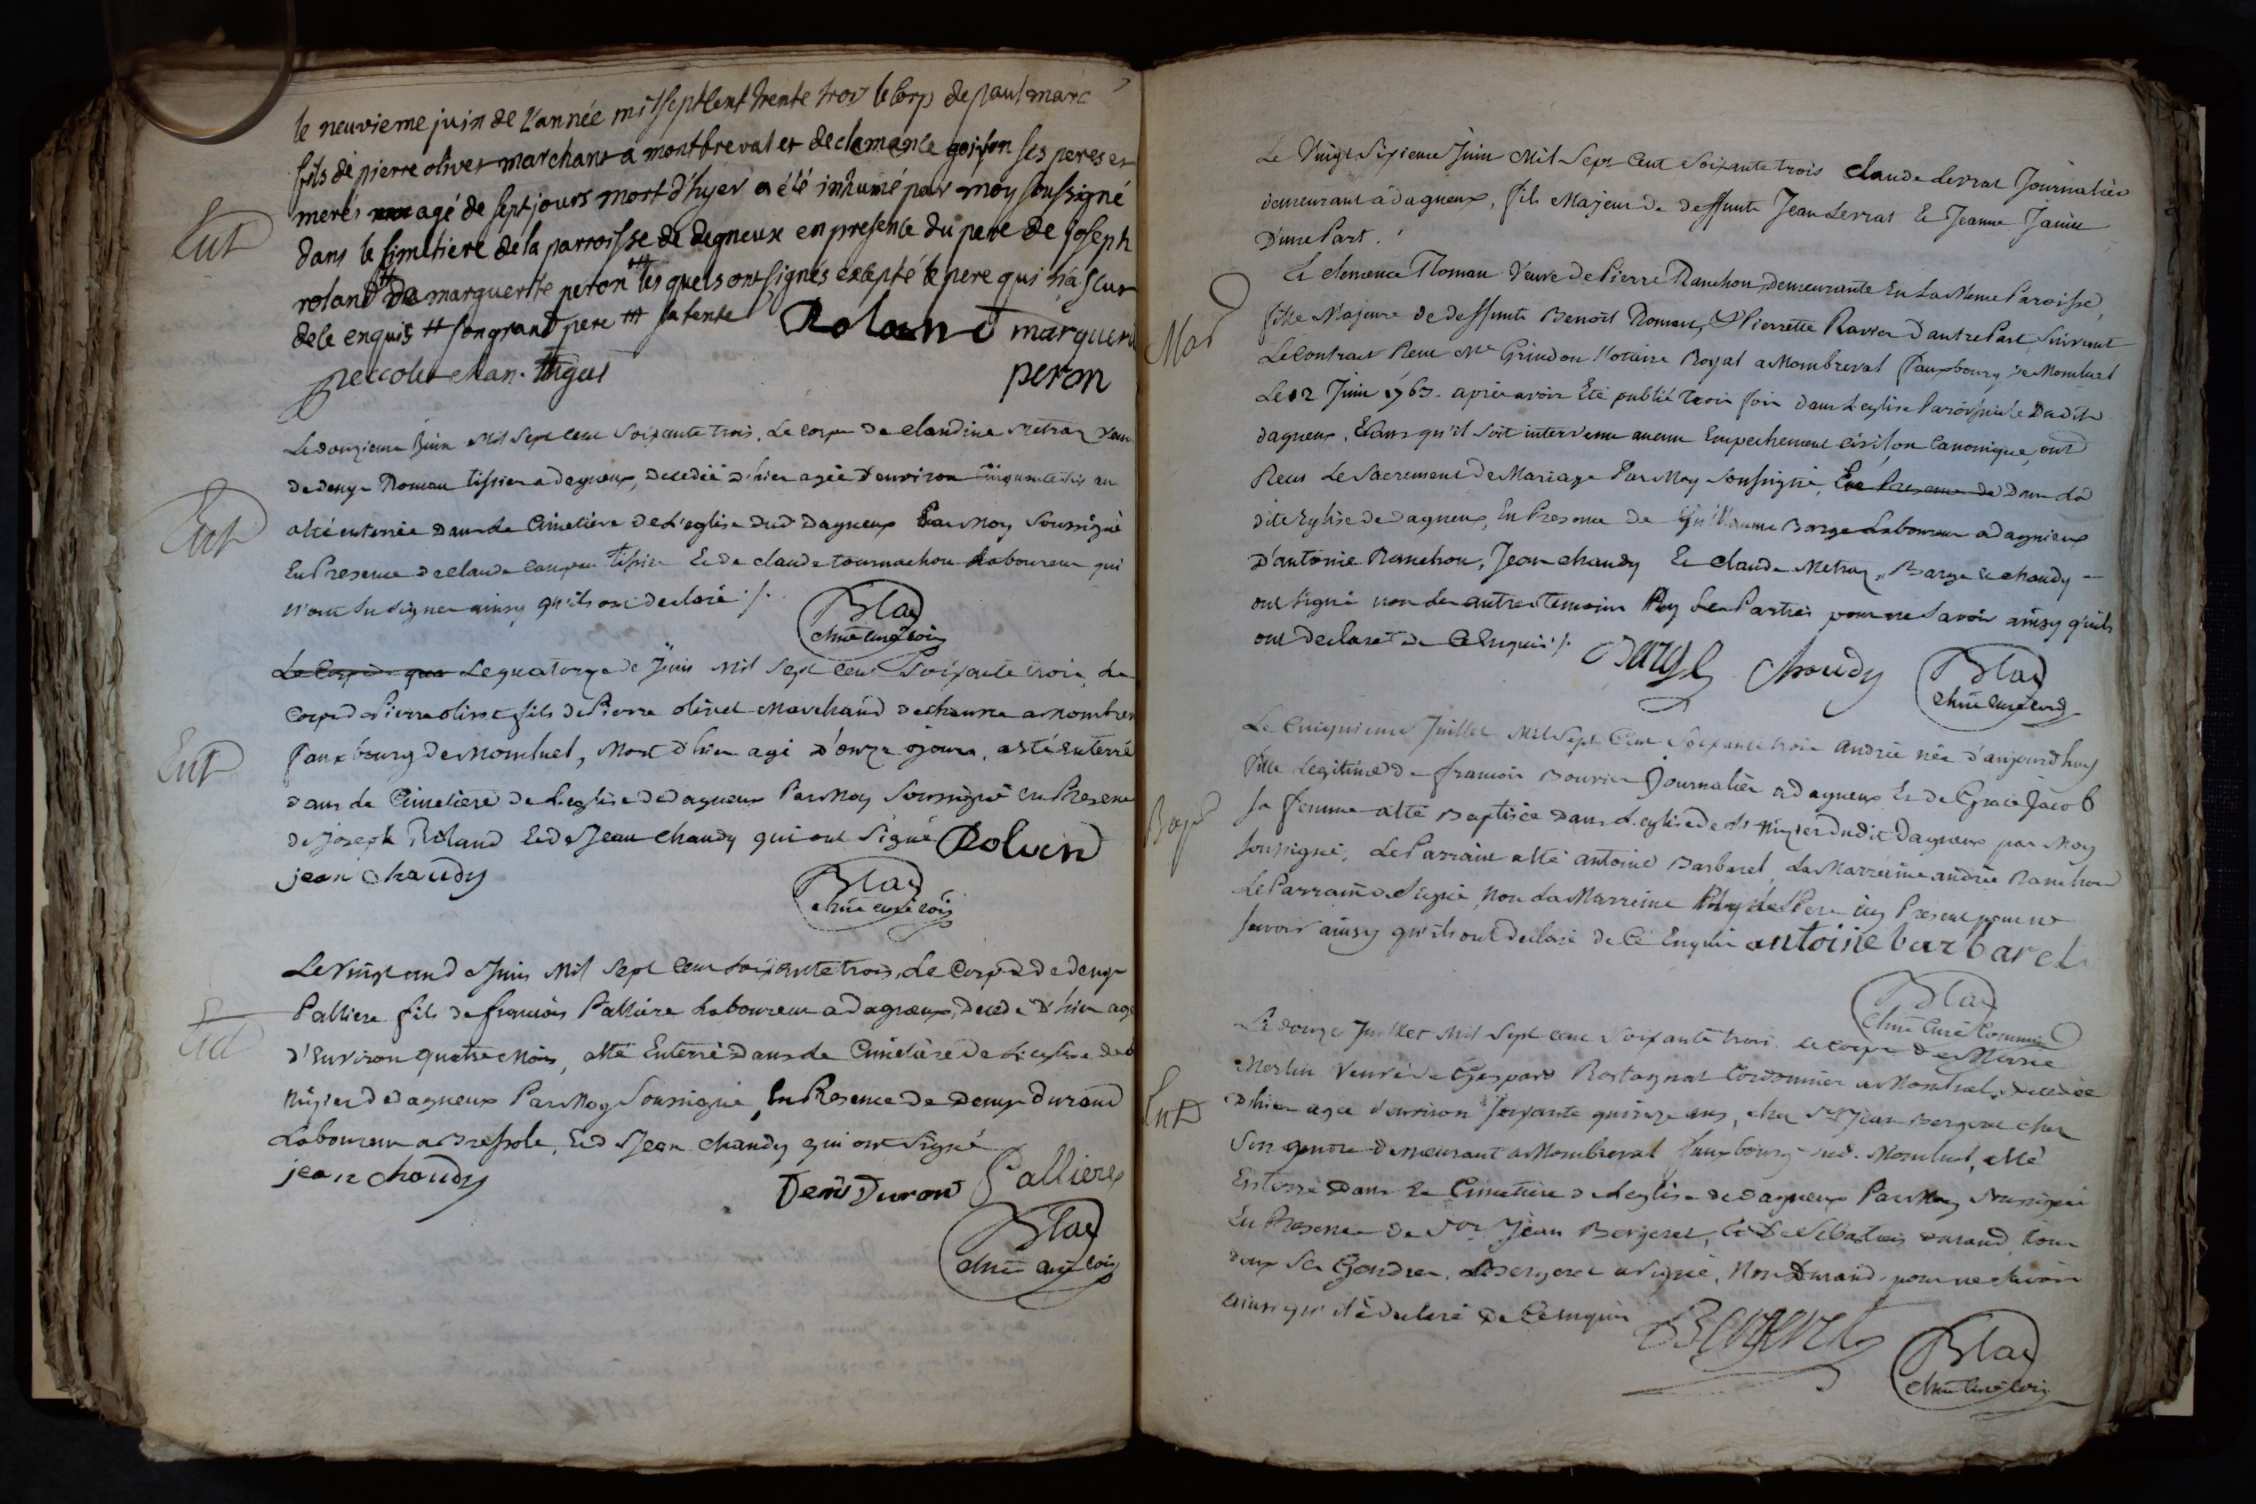 le neuvieme juin de l'année mil sept cent trente trois le corp de paul marc
fils de pierre olivet marchant a montbreval et de clemance goifon ses peres et
meres agé de sept jours mort d'hyer a été inhumé par moy soussigné
dans le simetiere de la parroisse de degneux en presence du pere de joseph
roland de marguerite peron les quels ont signés excepté le pere qui n'a scut
de le enquis # son grand pere ### sa tente Roland marguerit
peron
Ent
Le douzieme Juin Mil Sept Cent Soixante trois, Le corps de claudine Metraz veuve
de denys Roman tissier a dagneux, decedeé d'hier ageé d'environ Cinquante six an
a été enterrée dans Le Cimetiere de L'eglise dud dagneux Par Moy Soussigné
En Presence de claude tissier Et de claude tournachou Laboureur qui
n'ont su signer ainsy qu'ils ont declaré ./.
Ent
Blad
chne curé com
Le quatorze de Juin Mil Sept Cent Soixante trois, Le
Corps de Pierre olivet fils de Pierre olivet Marchand de chanvre a Mombre
fauxbourg de Momluel, Mort d'hier agé d'onze jours, a été enterré
Ent
dans Le Cimetiere de L'eglise de dagneux Par Moy Soussigné en Presence
de joseph Roland Et de Jean chaudy qui ont Signé Roland
jean chaudy
Blad
chne curé com
Le Vingt un de Juin Mil Sept Cent soixante trois, Le Corps de denys
Palliere fils de françois Palliere Laboureur a dagneux, decedé d'hier agé
d'Environ quatre Mois, a été Enterré Dans Le Cimetière De L'eglise de St
Ent
Nigier de dagneux Par Moy Soussigné, En Presence de Denys Durand
Laboureur a Bressole, Et de Jean chaudy qui ont Signé
jean chaudy
Denis Durand Palliere
Blad
chne curé com
Le Vingt Sixieme Juin Mil Sept Cent Soixante trois claude Levrat Journalier
demeurant à dagneux, fils Majeur de deffunts Jean Levrat Et Jeanne
D'une Part.
Et clemence Roman Veuve de Pierre Ranchon, demeurante En La Meme Paroisse,
Mar
fille Majeure de deffunts Benoît Roman, Et Pierrette Ravier D'autre Part, Suivant
Le Contrat Reçu Me Grindon Notaire Royal a Mombreval fauxbourg de Momluel
Le 12 Juin 1763. après avoir Eté publié trois fois dans L'eglise Paroissiale Dudit
dagneux, Sans qu'il soit intervenu aucun Empechement civil, ou Canonique, ont
Reçu Le Sacrement de Mariage Par Moy Soussigné, En Presence de Dans La
dite Eglise de dagneux, En Presence de Guillaume Barge Laboureur a dagnieux
D'antoine Ranchon, Jean chaudy Et claude Metraz, Barge Et chaudy
ont signé non Les autres temoins Ny Les Parties pour ne Savoir ainsy qu'ils
ont declaré de Ce Enquis ./.
Barge Chaudy Blad
chne curé com
Le Cinquieme Juillet Mil Sept Cent Soixante trois andrée née d'aujourd'huy
fille Legitime de françois Bouvier Journalier a dagneux Et de Grace Jacob
Bapt
sa femme a été Baptisée Dans L'eglise de St Nigier dudit Dagneux par Moy
soussigné. Le Parrain a été antoine Barbaret, La Marreine andrée Ranchon
Le Parrain a Signé, Non La Marreine Ny Le Pere icy Present pour ne
savoir ainsy qu'ils ont declaré de Ce Enquis antoine barbaret
Blad
chne Curé Commis
Le douze Juillet Mil Sept Cent Soixante trois Le corps de
Merlin Veuve de Gaspard Rostagnat Cordonnier a Momluel, decedée
Ent
d'hier agée d'environ soixante quinze ans, chez Sr Jean Bergeret chez
Son gendre demeurant a Mombreval fauxbourg dud. Momluel, a été
Enterré Dans Le Cimetière de L'eglise de dagneux Par Moy Soussigné
En Presence de Sr Jean Bergeret, Et De Sébastien Durand, tous
deux Ses Gendres. Le Sr Bergeret a Signé, Non Durand pour ne Savoir
ainsy qu'il a declaré De Ce enquis
Bergeret Blad
chne curé com